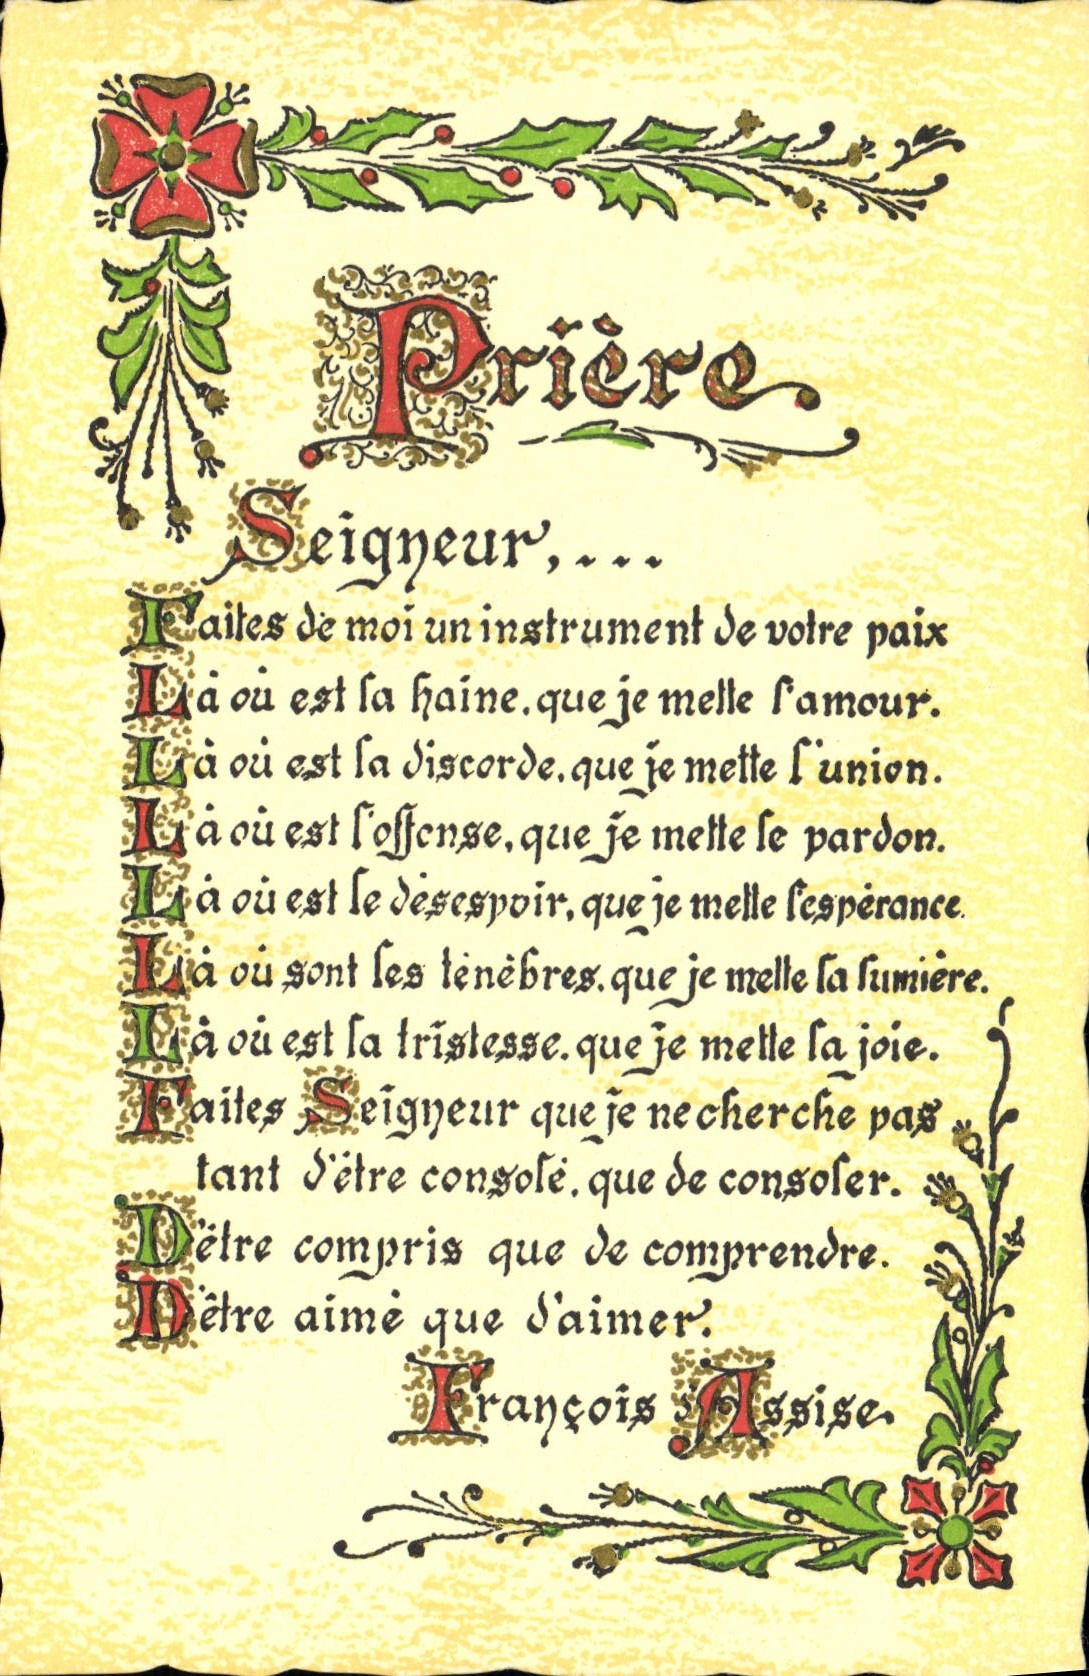 Prière
Seigneur,...
Faites de moi un instrument de votre paix
Là où est la haine, que je mette l'amour.
Là où est la discorde, que je mette l'union.
Là où est l'offense, que je mette le pardon.
Là où est le désespoir, que je mette l'espérance.
Là où sont les ténèbres, que je mette la lumière.
Là où est la tristesse, que je mette la joie.
Faites Seigneur que je ne cherche pas
tant d'être consolé, que de consoler.
D'être compris que de comprendre.
D'être aimé que d'aimer.
François d'Assise.